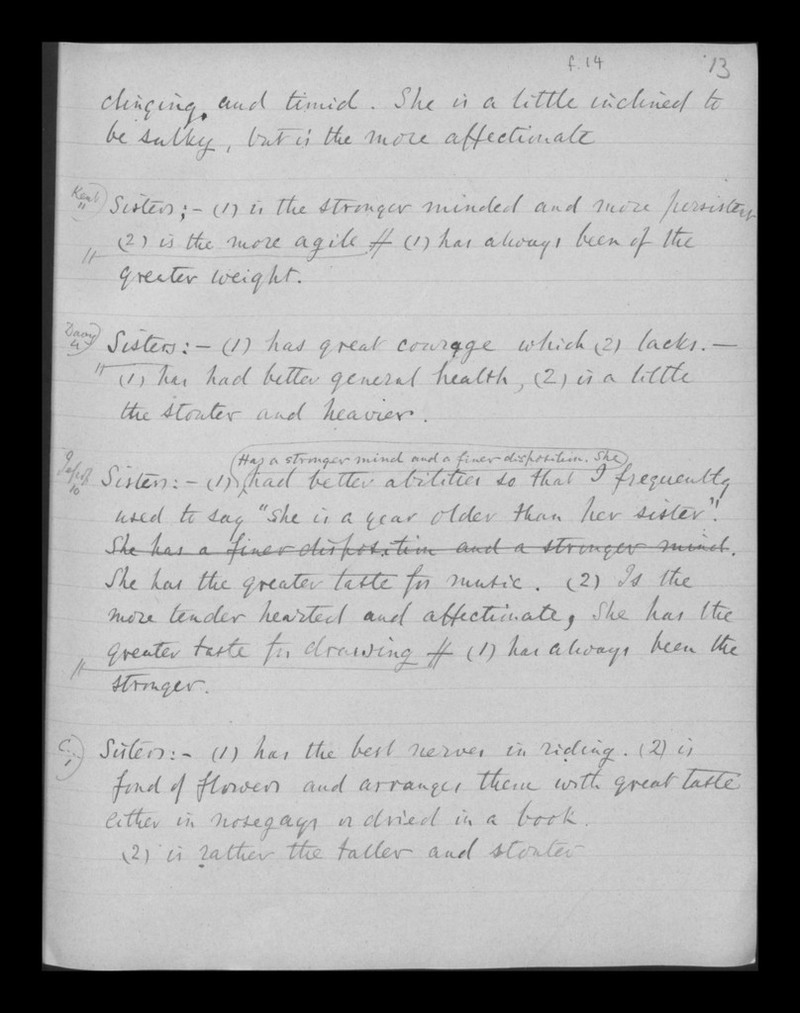 f. 14 13
clinging, and timid. She is a little inclined to
be sulky, but is the more affectionate
Kent "
Sisters;- (1) is the stronger minded and more persistent
(2) is the more agile // (1) has always been of the
greater weight.
Sisters:- (1) has great courage which (2) lacks. —
(1) has had better general health, (2) is a little
the stouter and heavier.
Has a stronger mind and a finer disposition. She
Sisters:- (1) had better abilities so that I frequently
used to say "She is a year older than her sister".
She has a finer disposition and a stronger mind.
She has the greater taste for music. (2) Is the
more tender hearted and affectionate, She has the
greater taste for drawing // (1) has always been the
stronger.
C. 1
Sisters:- (1) has the best nerves in riding. (2) is
fond of flowers and arranges them with great taste
either in nosegays or dried in a book.
(2) is rather the taller and stouter